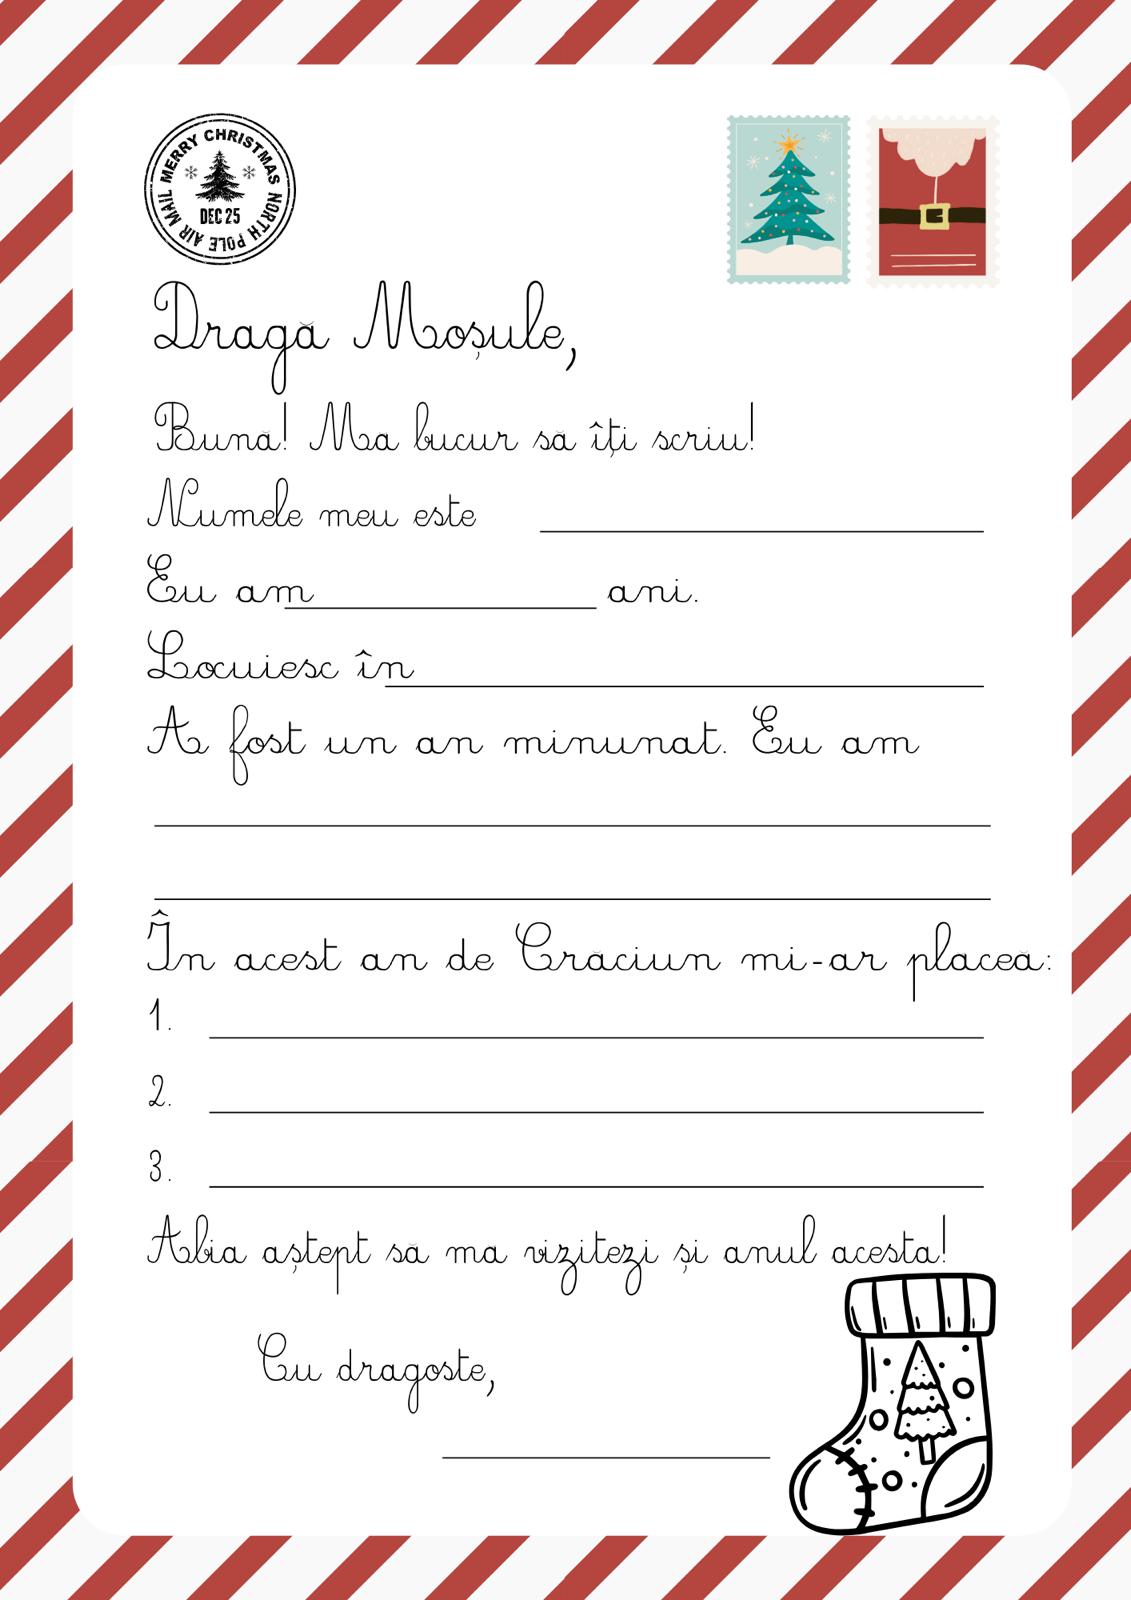 MERRY CHRISTMAS
NORTH POLE AIR MAIL
DEC 25
Dragă Moșule,
Bună! Mă bucur să îți scriu!
Numele meu este
Eu am ani.
Locuiesc în
A fost un an minunat. Eu am
În acest an de Crăciun mi-ar placea:
1.
2.
3.
Abia aștept să ma vizitezi și anul acesta!
Cu dragoste,